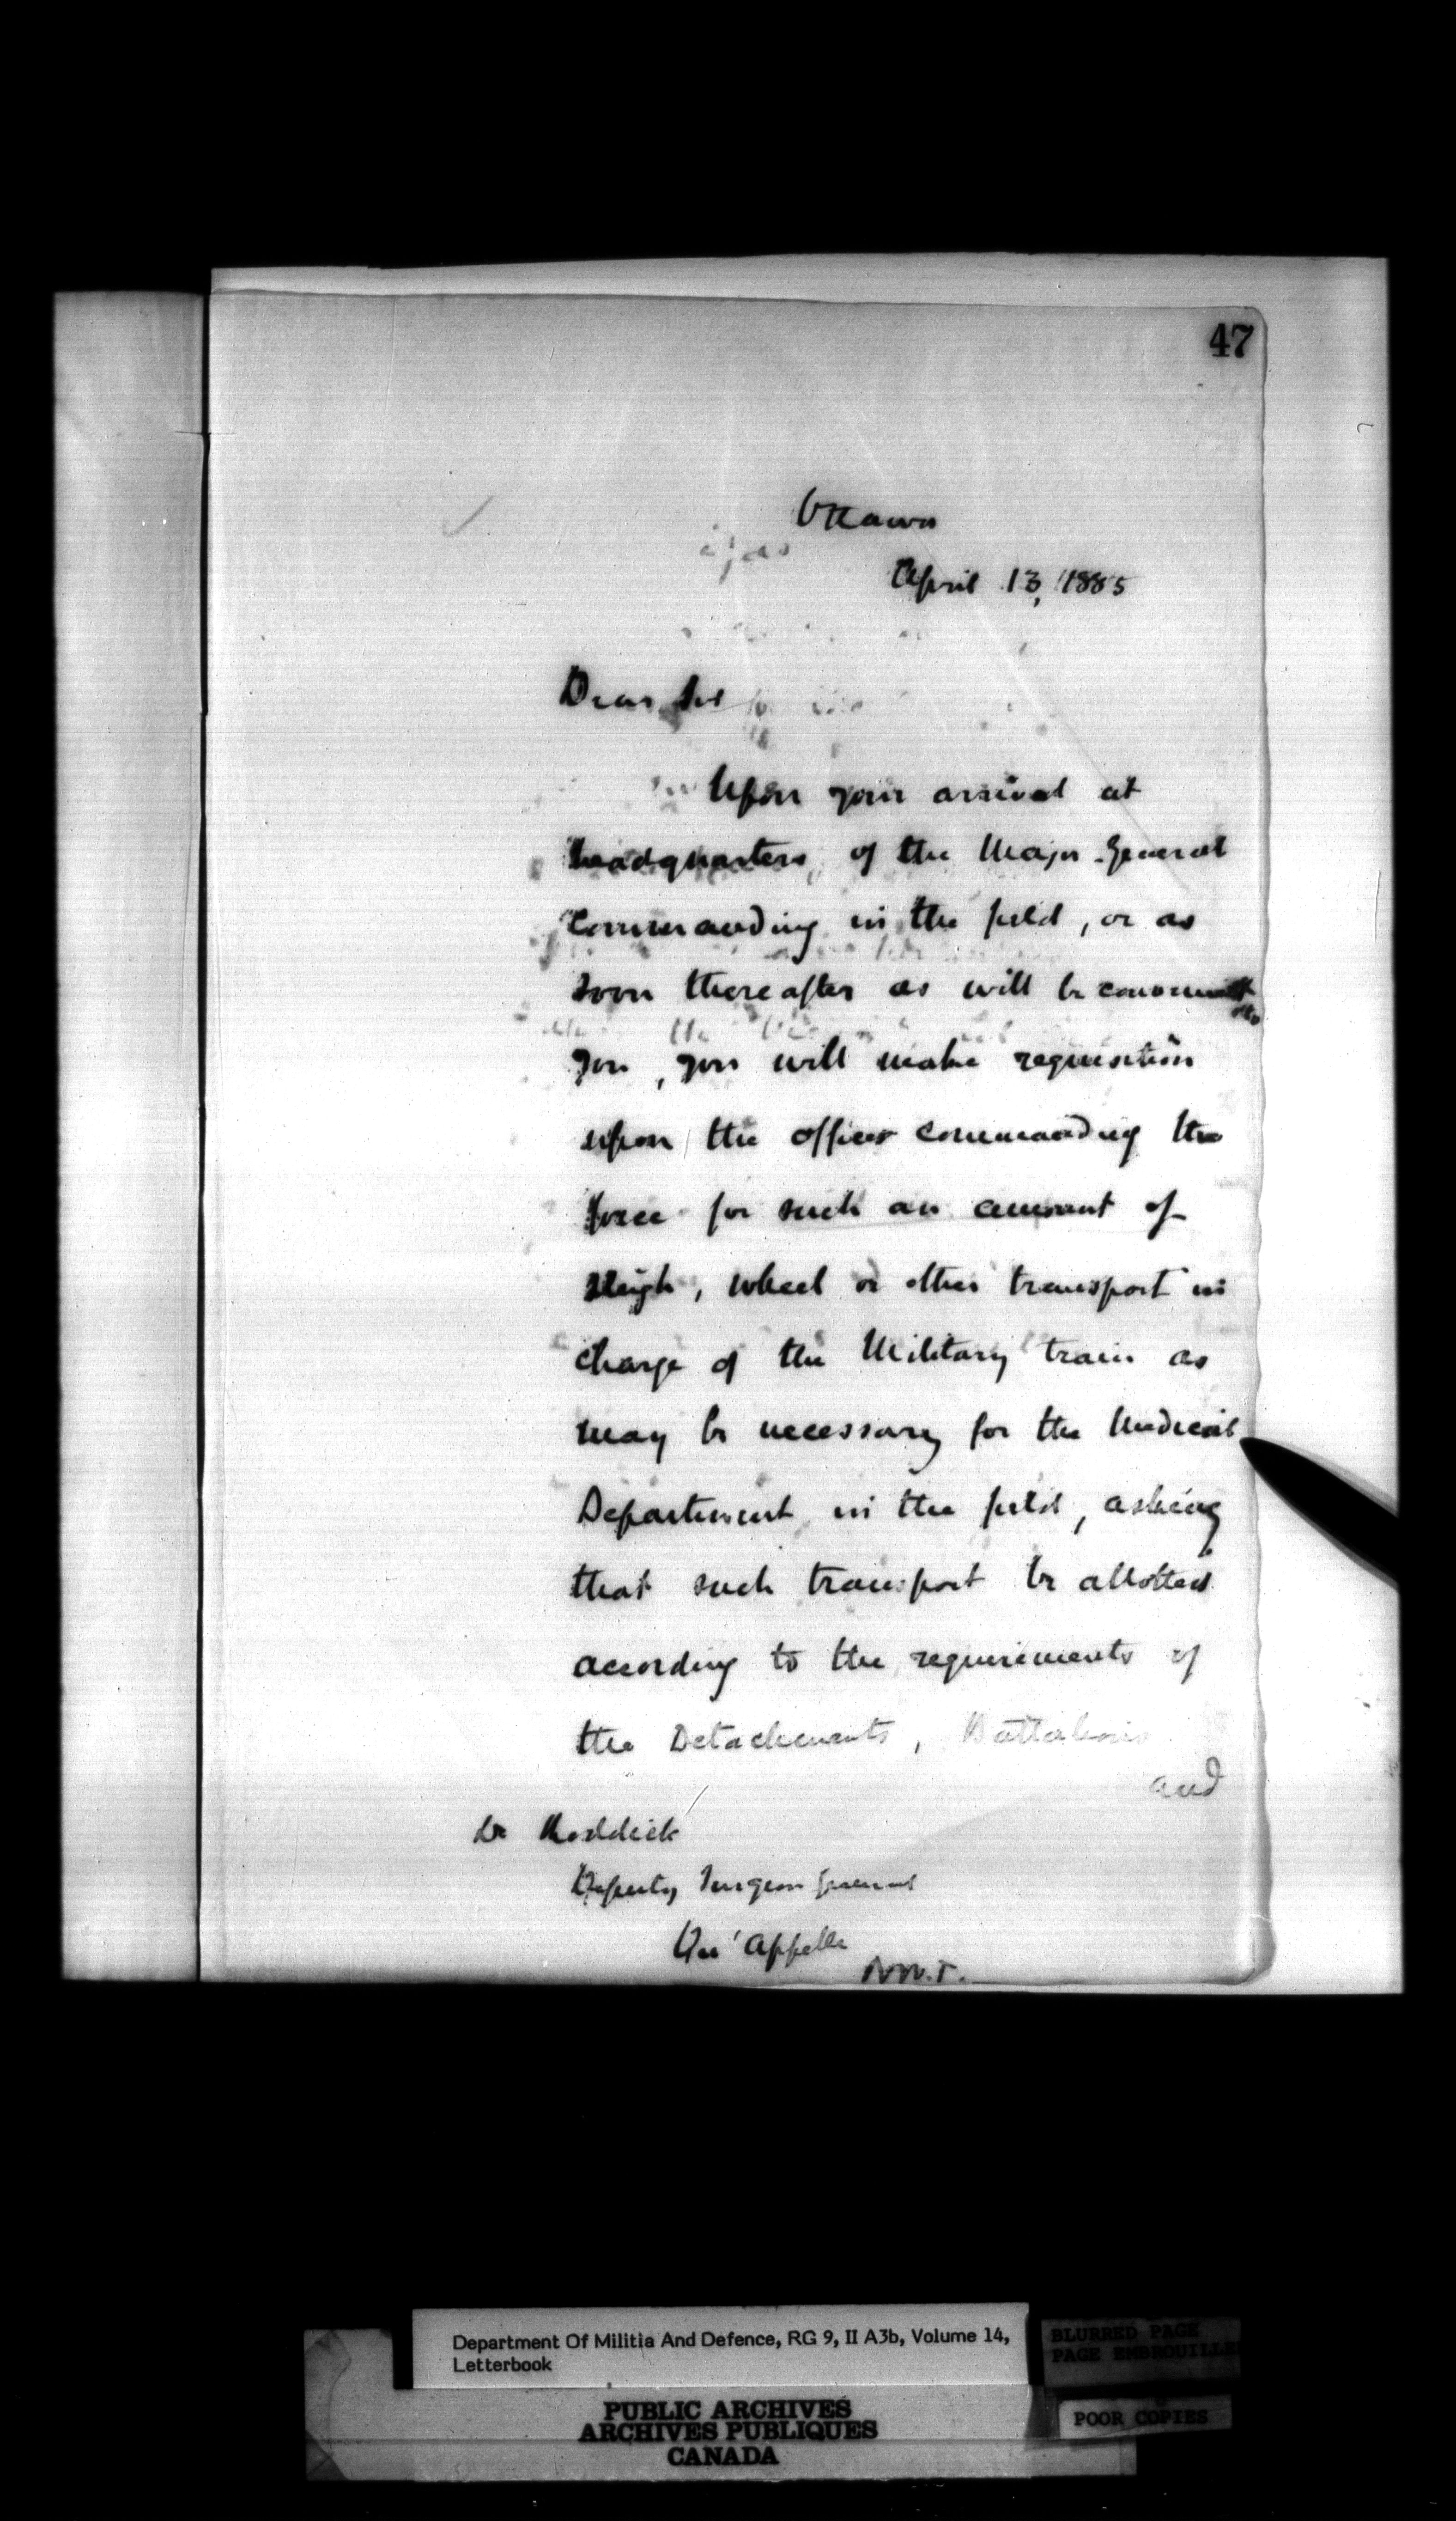 47
Ottawa
April 13, 1885
Dear Sir
Upon your arrival at
headquarters, of the Major-General
Commanding in the field, or as
soon thereafter as will be convenient
to
you, you will make requisition
upon the officer commanding the
force for such an amount of
sleigh, wheel or other transport in
charge of the Military train as
may be necessary for the Medical
Department in the field, asking
that such transport be allotted
according to the requirements of
the Detachments, Battalions
and
Dr Roddick
Deputy Surgeon General
Qu'Appelle
N.W.T.
Department Of Militia And Defence, RG 9, II A3b, Volume 14,
Letterbook
BLURRED PAGE
PAGE EMBROUILLE
PUBLIC ARCHIVES
ARCHIVES PUBLIQUES
CANADA
POOR COPIES